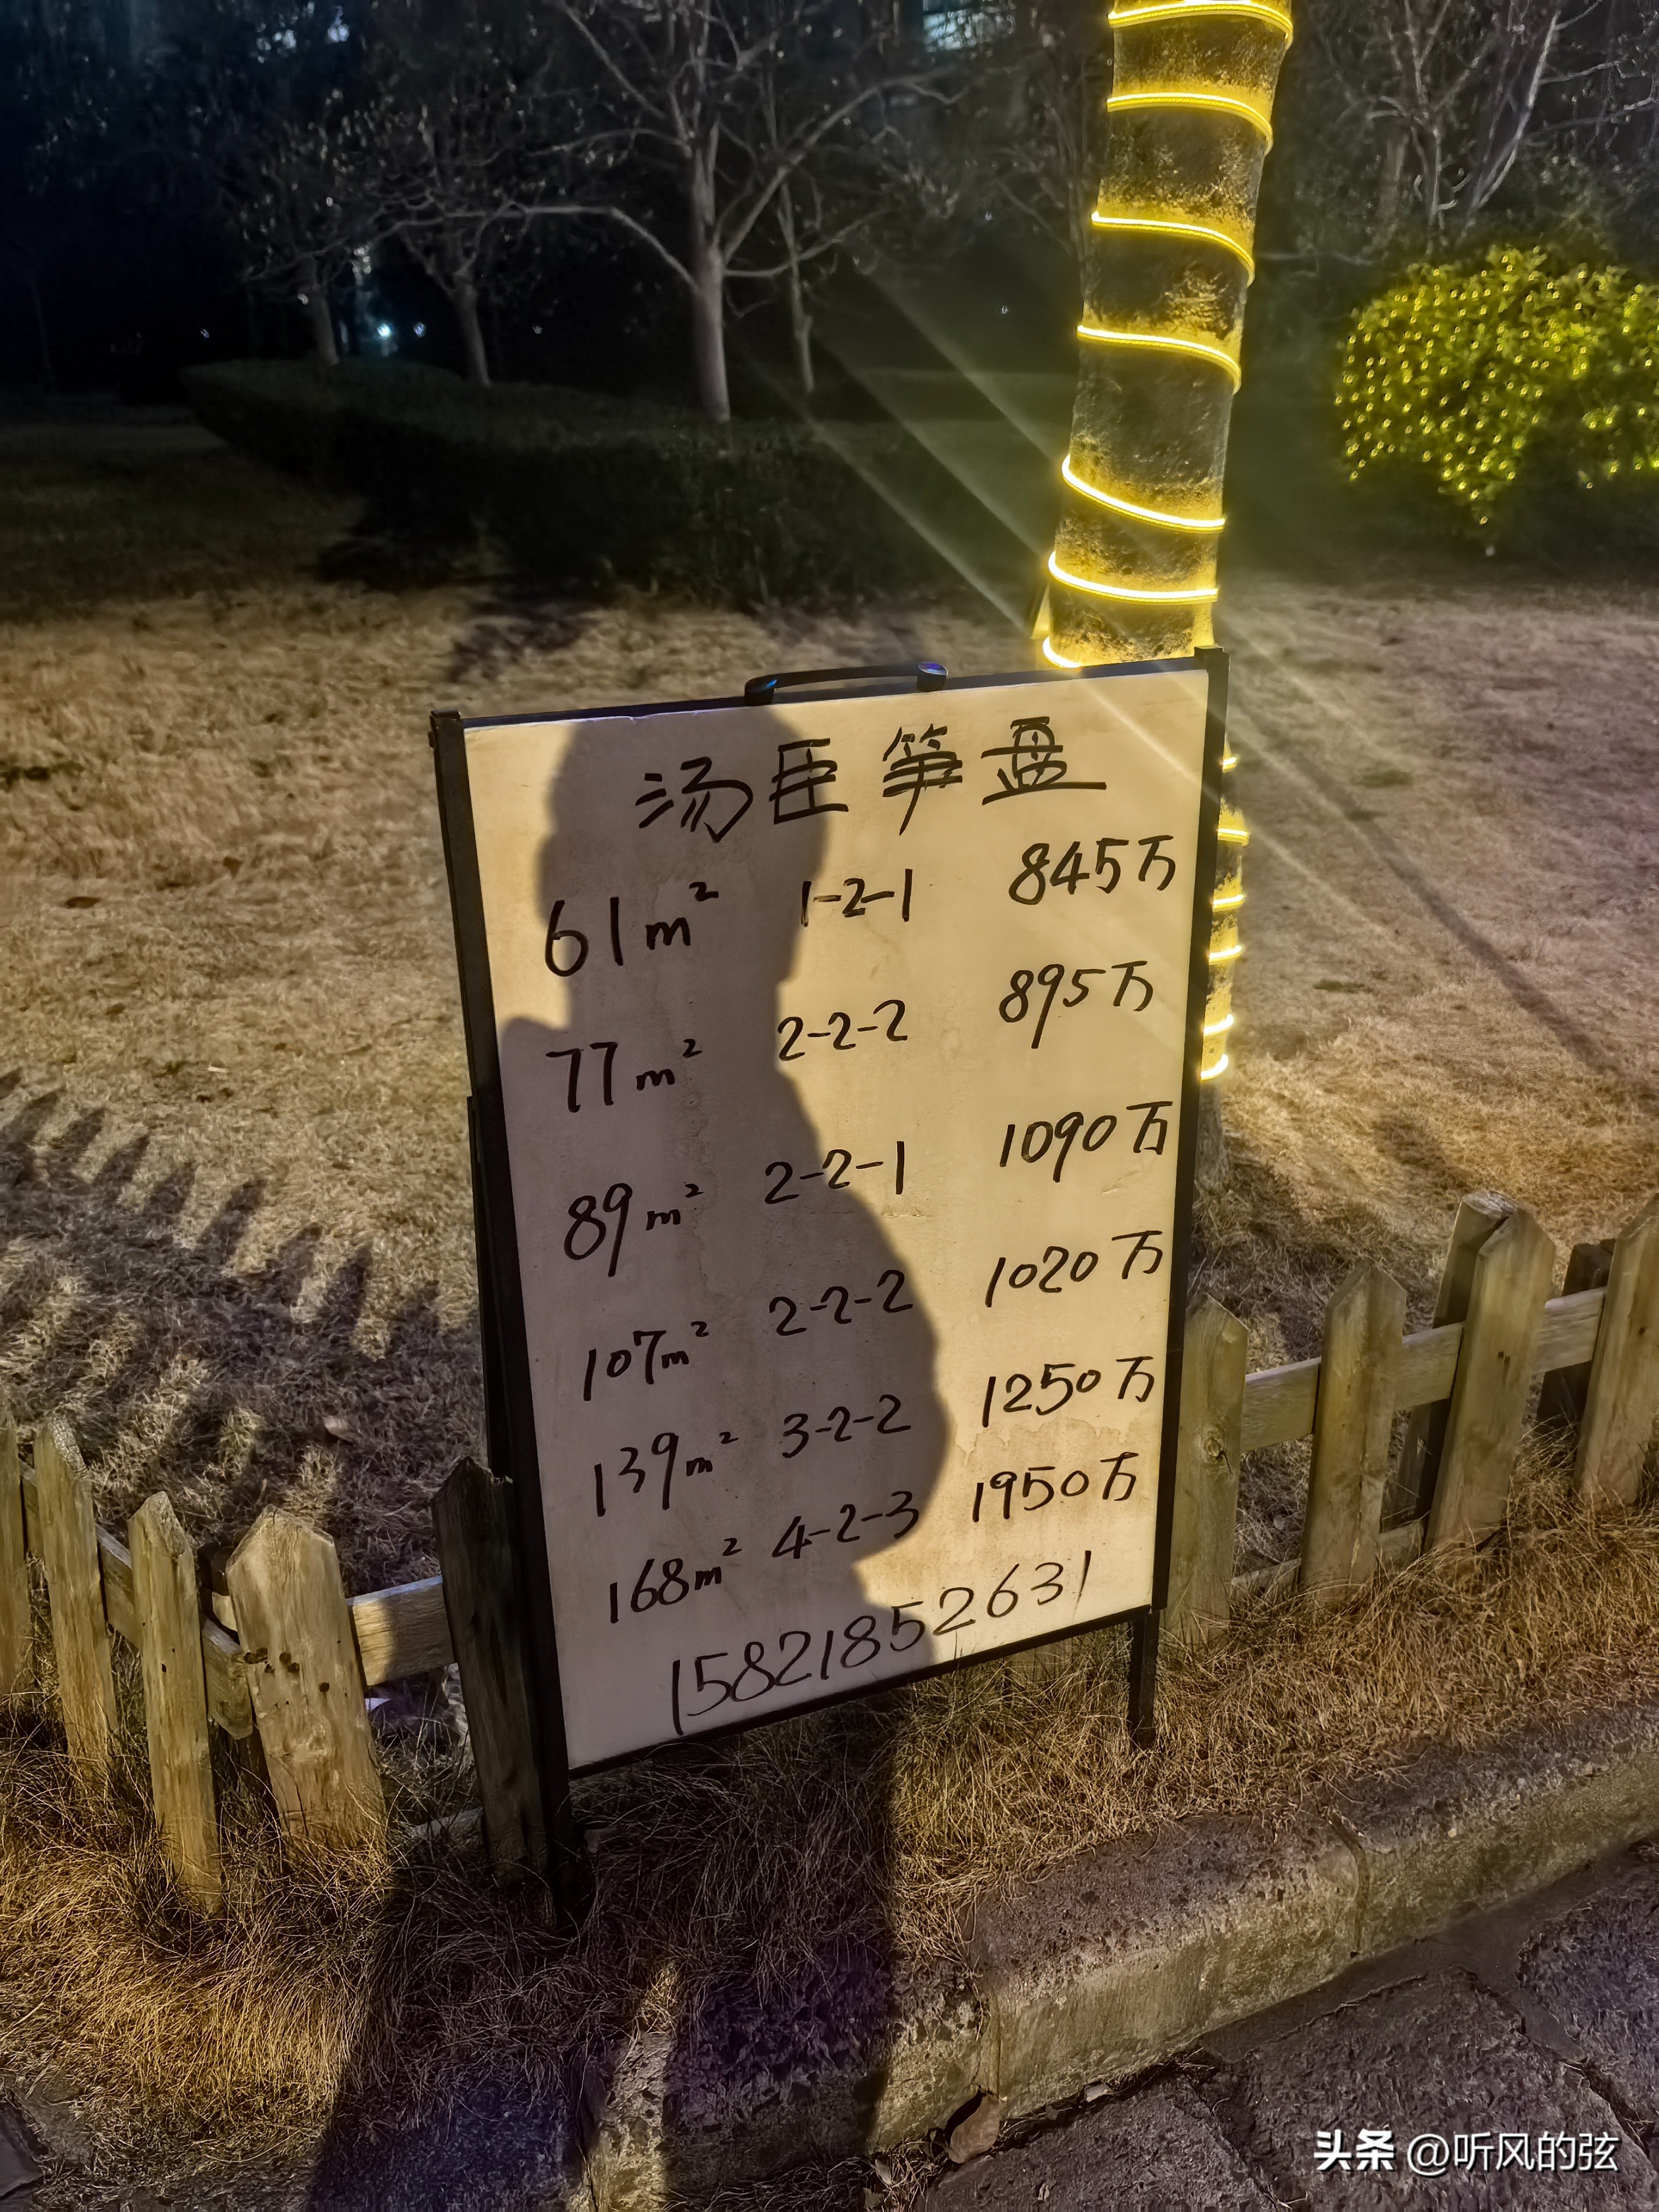 汤臣笋盘
61m² 1-2-1 845万
77m² 2-2-2 895万
89m² 2-2-1 1090万
107m² 2-2-2 1020万
139m² 3-2-2 1250万
168m² 4-2-3 1950万
15821852631
头条 @听风的弦